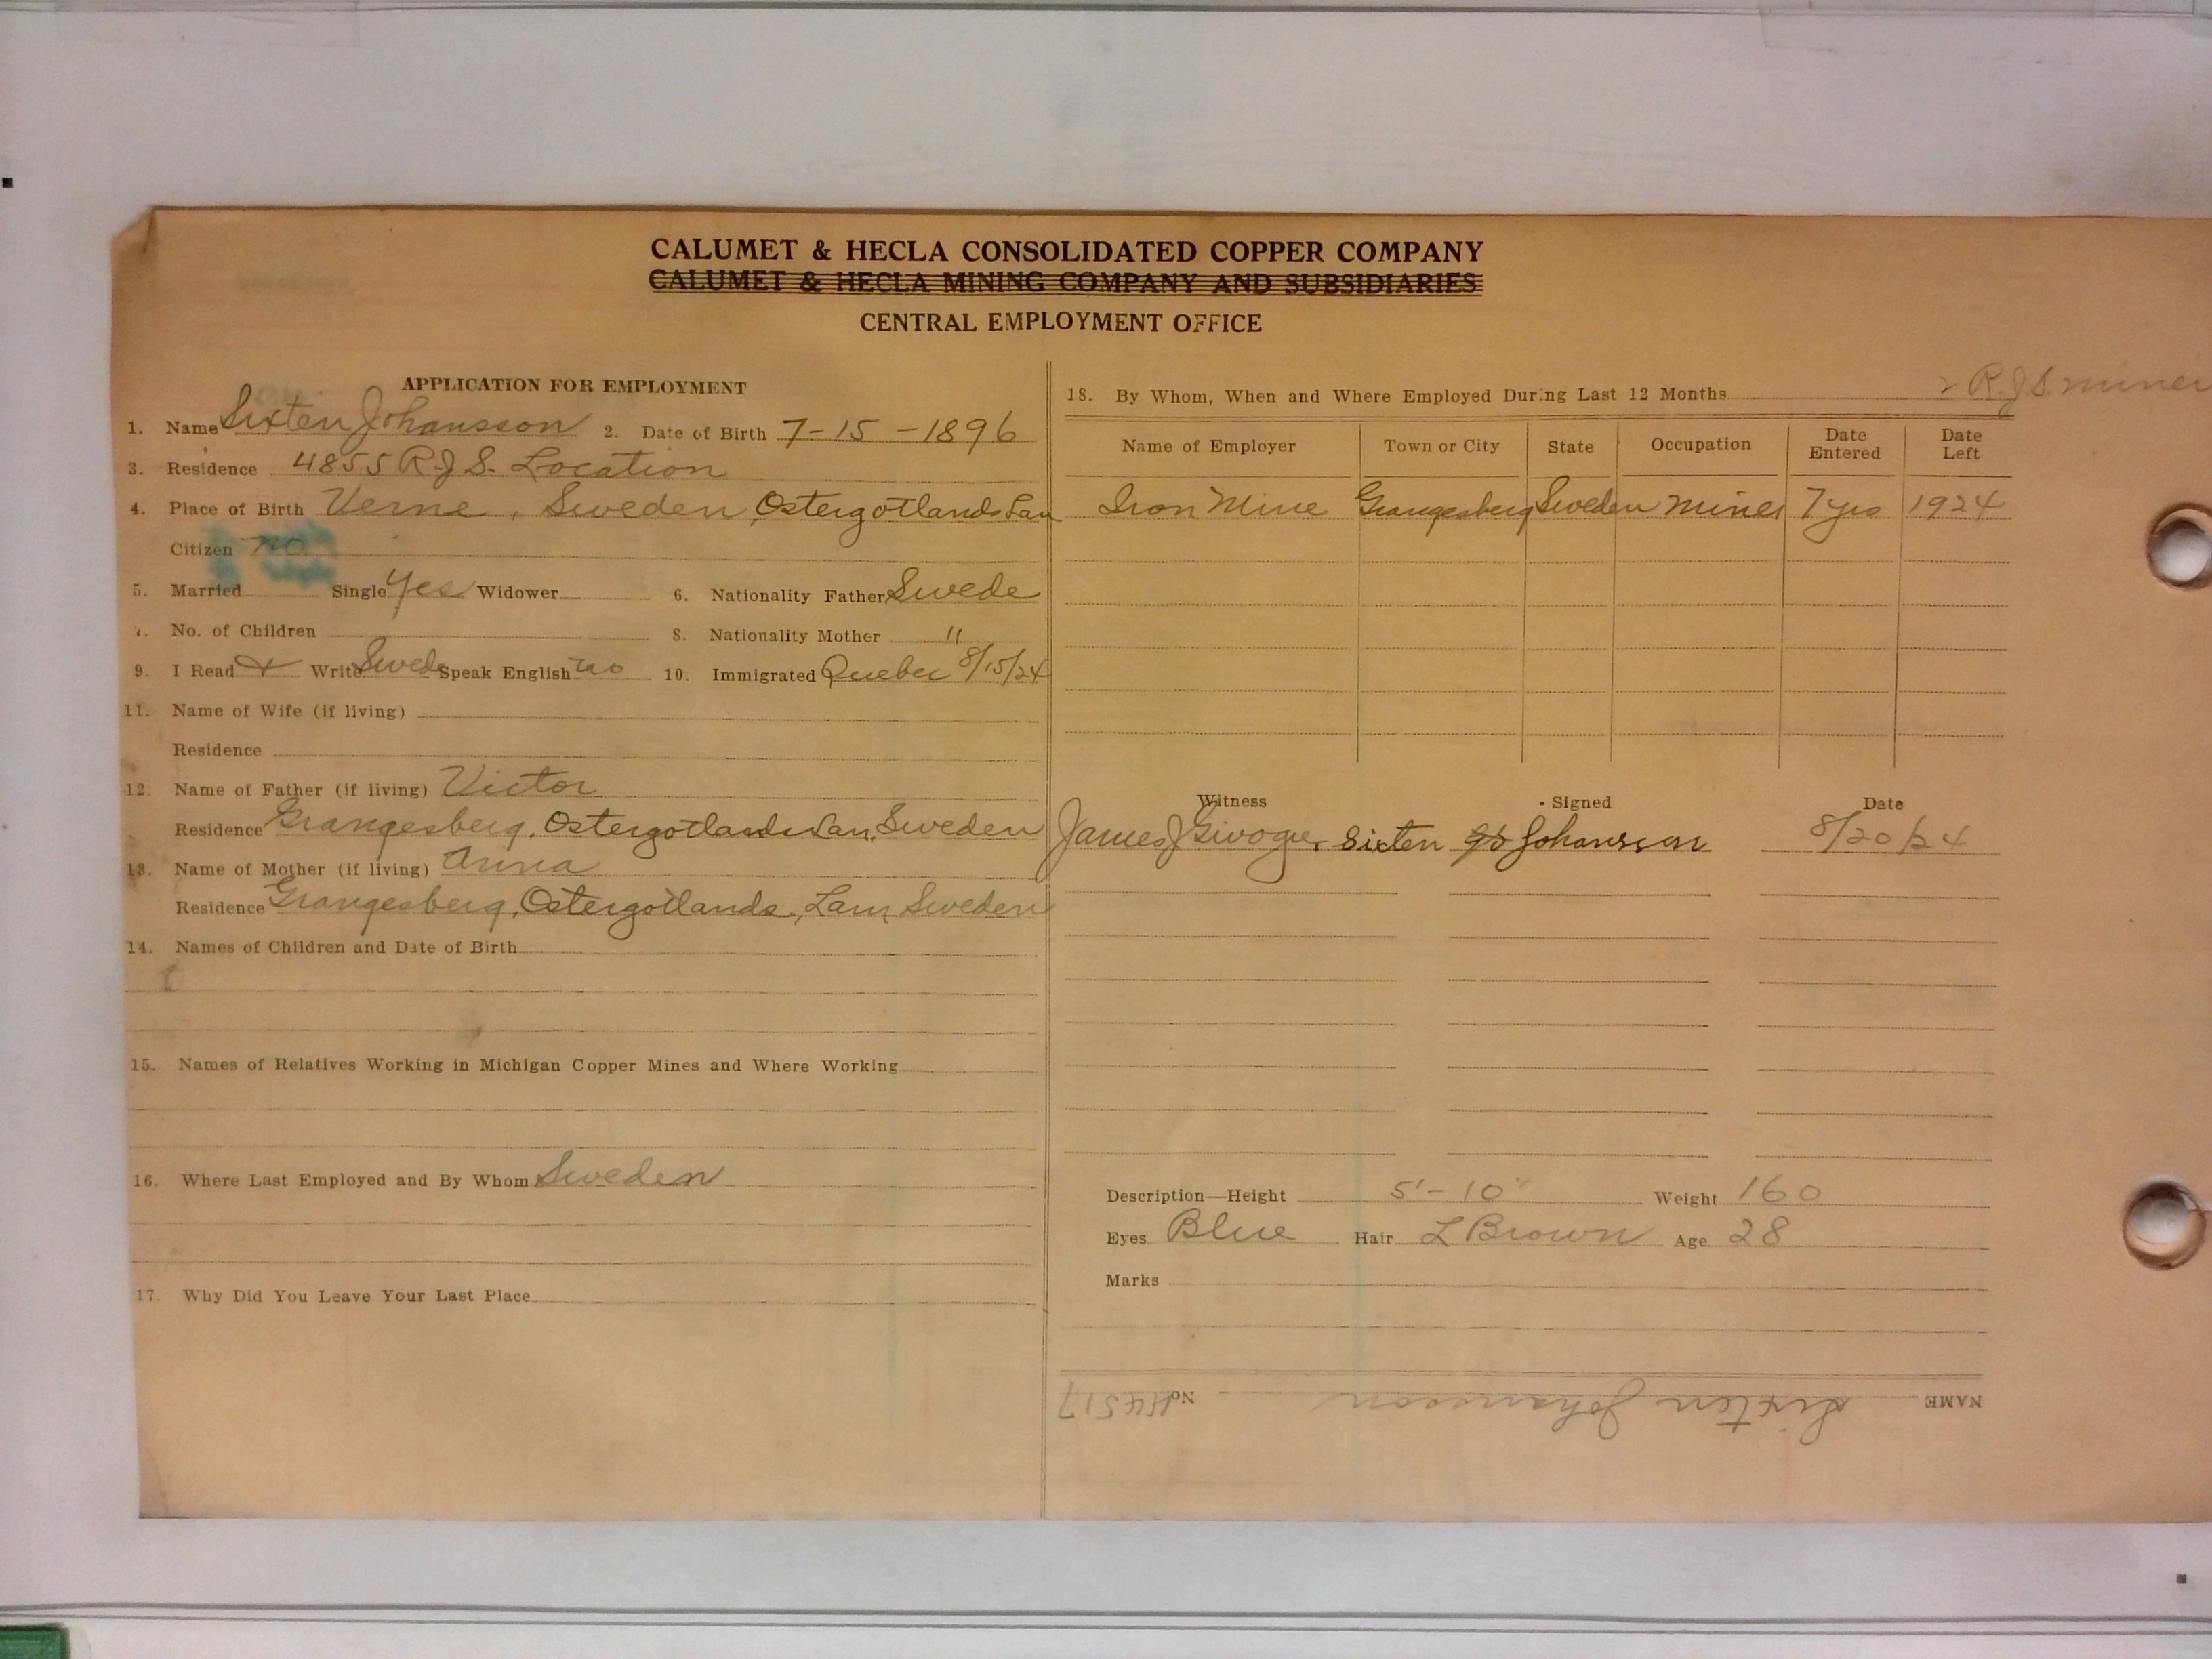 CALUMET & HECLA CONSOLIDATED COPPER COMPANY
CALUMET & HECLA MINING COMPANY AND SUBSIDIARIES
CENTRAL EMPLOYMENT OFFICE
APPLICATION FOR EMPLOYMENT
1. Name Sixten Johansson 2. Date of Birth 7-15-1896
3. Residence 4855 R.J.S. Location
4. Place of Birth Verne, Sweden, Ostergotlands Lan
Citizen no
5. Married Single Yes Widower 6. Nationality Father Swede
7. No. of Children 8. Nationality Mother "
9. I Read & Write Swede Speak English no 10. Immigrated Quebec 8/15/24
11. Name of Wife (if living)
Residence
12. Name of Father (if living) Victor
Residence Grangesberg, Ostergotlands Lan, Sweden
13. Name of Mother (if living) Anna
Residence Grangesberg, Ostergotlands, Lan, Sweden
14. Names of Children and Date of Birth
15. Names of Relatives Working in Michigan Copper Mines and Where Working
16. Where Last Employed and By Whom Sweden
17. Why Did You Leave Your Last Place
R.J.S. miner
18. By Whom, When and Where Employed During Last 12 Months
Name of Employer Town or City State Occupation Date Entered Date Left
Iron Mine Grangesberg Sweden Miner 7 yrs 1924
Witness Signed Date
James J Sixten Johansson 8/20/24
Description—Height 5'-10" Weight 160
Eyes Blue Hair L Brown Age 28
Marks
NAME Sixten Johansson No. 114517